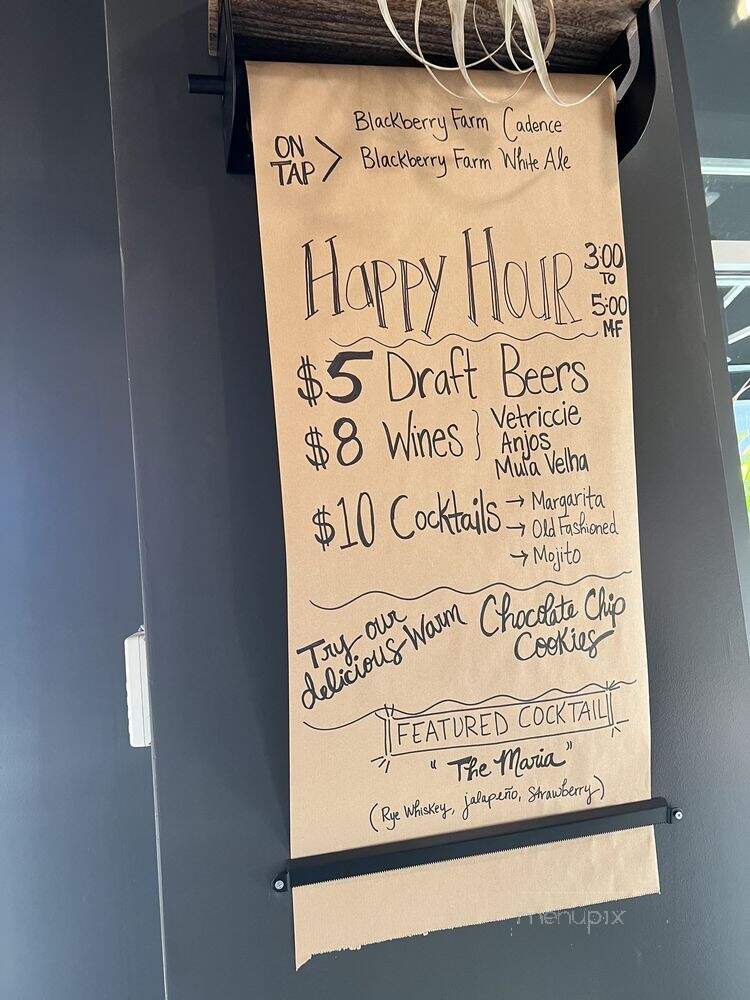 Blackberry Farm Cadence
ON TAP > Blackberry Farm White Ale
Happy Hour 3:00 TO 5:00 MF
$5 Draft Beers
$8 Wines } Vetriccie
Anjos
Mula Velha
$10 Cocktails → Margarita
→ Old Fashioned
→ Mojito
Try our
delicious Warm Chocolate Chip
Cookies
FEATURED COCKTAIL
"The Maria"
(Rye Whiskey, jalapeño, Strawberry)
menupix